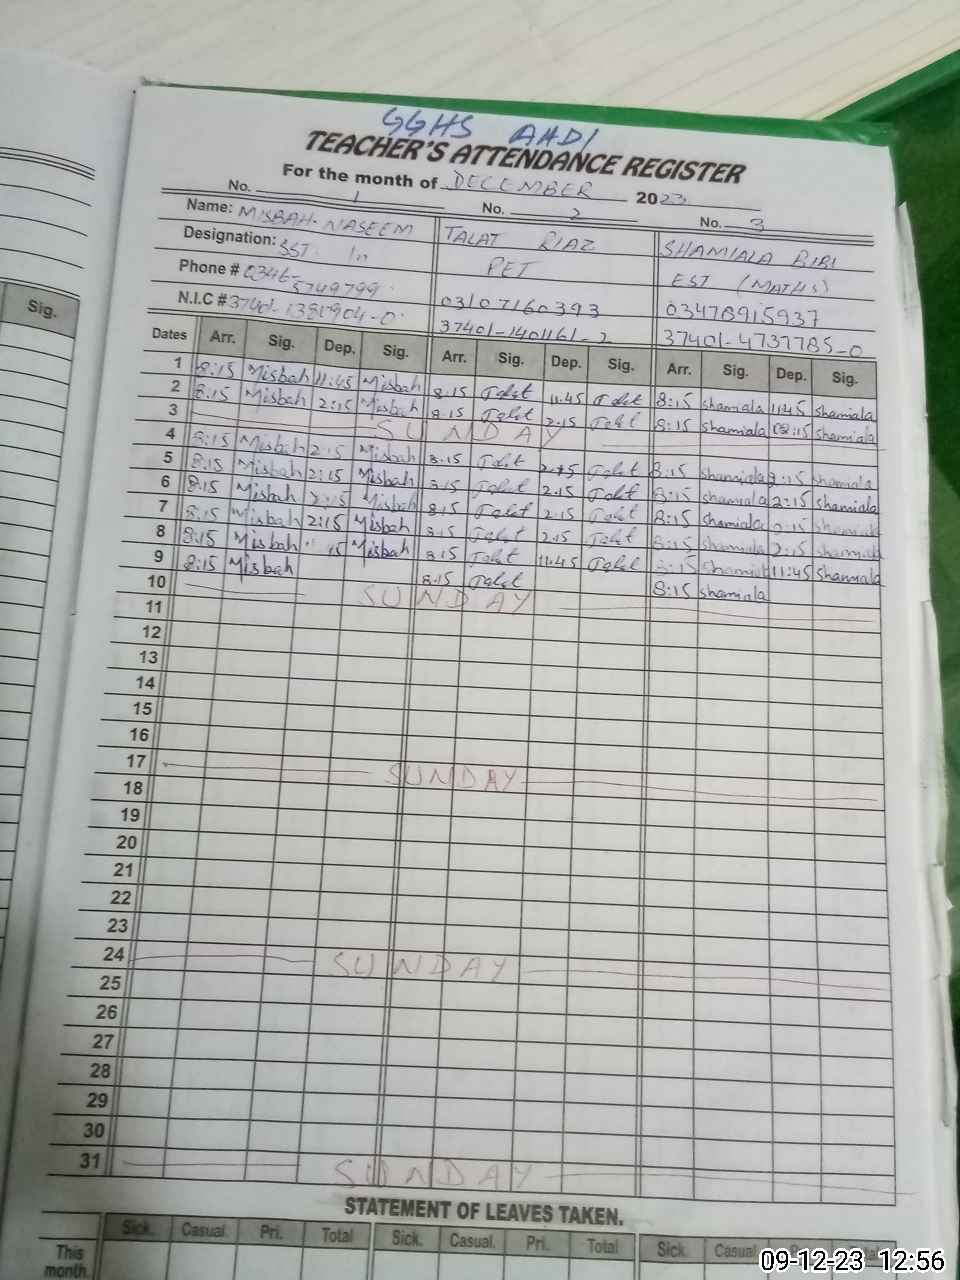 GGHS AHDI
TEACHER'S ATTENDANCE REGISTER
For the month of DECEMBER 2023
No. 1 No. 2 No. 3
Name: MISBAH NASEEM TALAT RIAZ SHAMIALA BIBI
Designation: SST PET EST (MATHS)
Phone # 0346-5749799 03107160393 03478915937
N.I.C # 37401-1401161-2 37401-4737785-0
Dates Arr. Sig. Dep. Sig. Arr. Sig. Dep. Sig. Arr. Sig. Dep. Sig.
Sig.
1 8:15 Misbah 11:45 Misbah 8.15 Talat 11.45 Talat 8:15 Shamiala 11:45 Shamiala
2 8:15 Misbah 2:15 Misbah 8.15 Talat 2.15 Talat 8:15 Shamiala 02:15 Shamiala
3 SUNDAY
4 8:15 Misbah 2:15 Misbah 8.15 Talat Talat 8:15 Shamiala 2:15 Shamiala
5 8:15 Misbah 2:15 Misbah 8.15 Talat 2.15 Talat 8:15 Shamiala 2:15 Shamiala
6 8:15 Misbah 2:15 Misbah 8.15 Talat 2.15 Talat 8:15 Shamiala 2:15 Shamiala
7 8:15 Misbah 2:15 Misbah 8.15 Talat 2.15 Talat 8:15 Shamiala 2:15 Shamiala
8 8:15 Misbah Misbah 8.15 Talat 11.45 Talat 8:15 Shamiala 11:45 Shamiala
9 8:15 Misbah 8.15 Talat 8:15 Shamiala
10 SUNDAY
11
12
13
14
15
16
17 SUNDAY
18
19
20
21
22
23
24 SUNDAY
25
26
27
28
29
30
31 SUNDAY
STATEMENT OF LEAVES TAKEN.
Sick. Casual. Pri. Total Sick. Casual. Pri. Total Sick. Casual
This
month.
09-12-23 12:56